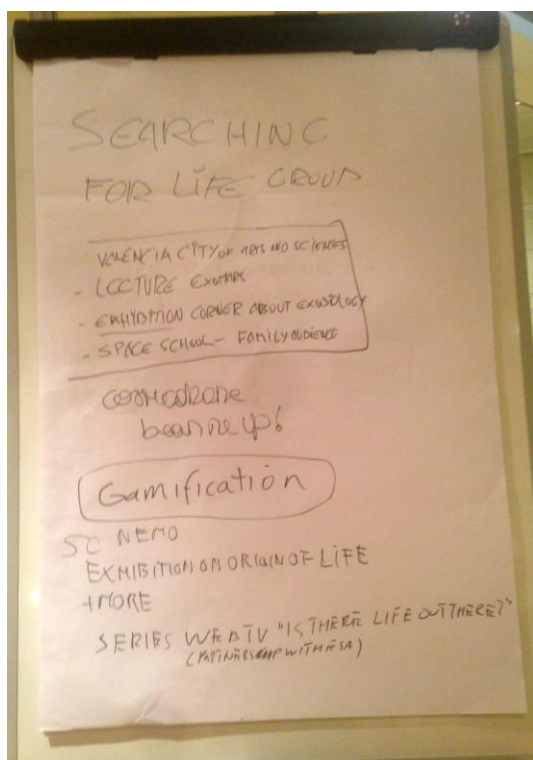 SEARCHING
FOR LIFE GROUP
VALENCIA CITY OF ARTS AND SCIENCES
- LECTURE EXOMARS
- EXHIBITION CORNER ABOUT EXOBIOLOGY
- SPACE SCHOOL - FAMILY AUDIENCE
COSMODROME
beam me up!
Gamification
SC NEMO
EXHIBITION ON ORIGIN OF LIFE
+MORE
SERIES WEB TV "IS THERE LIFE OUT THERE?"
(PARTNERSHIP WITH ESA)